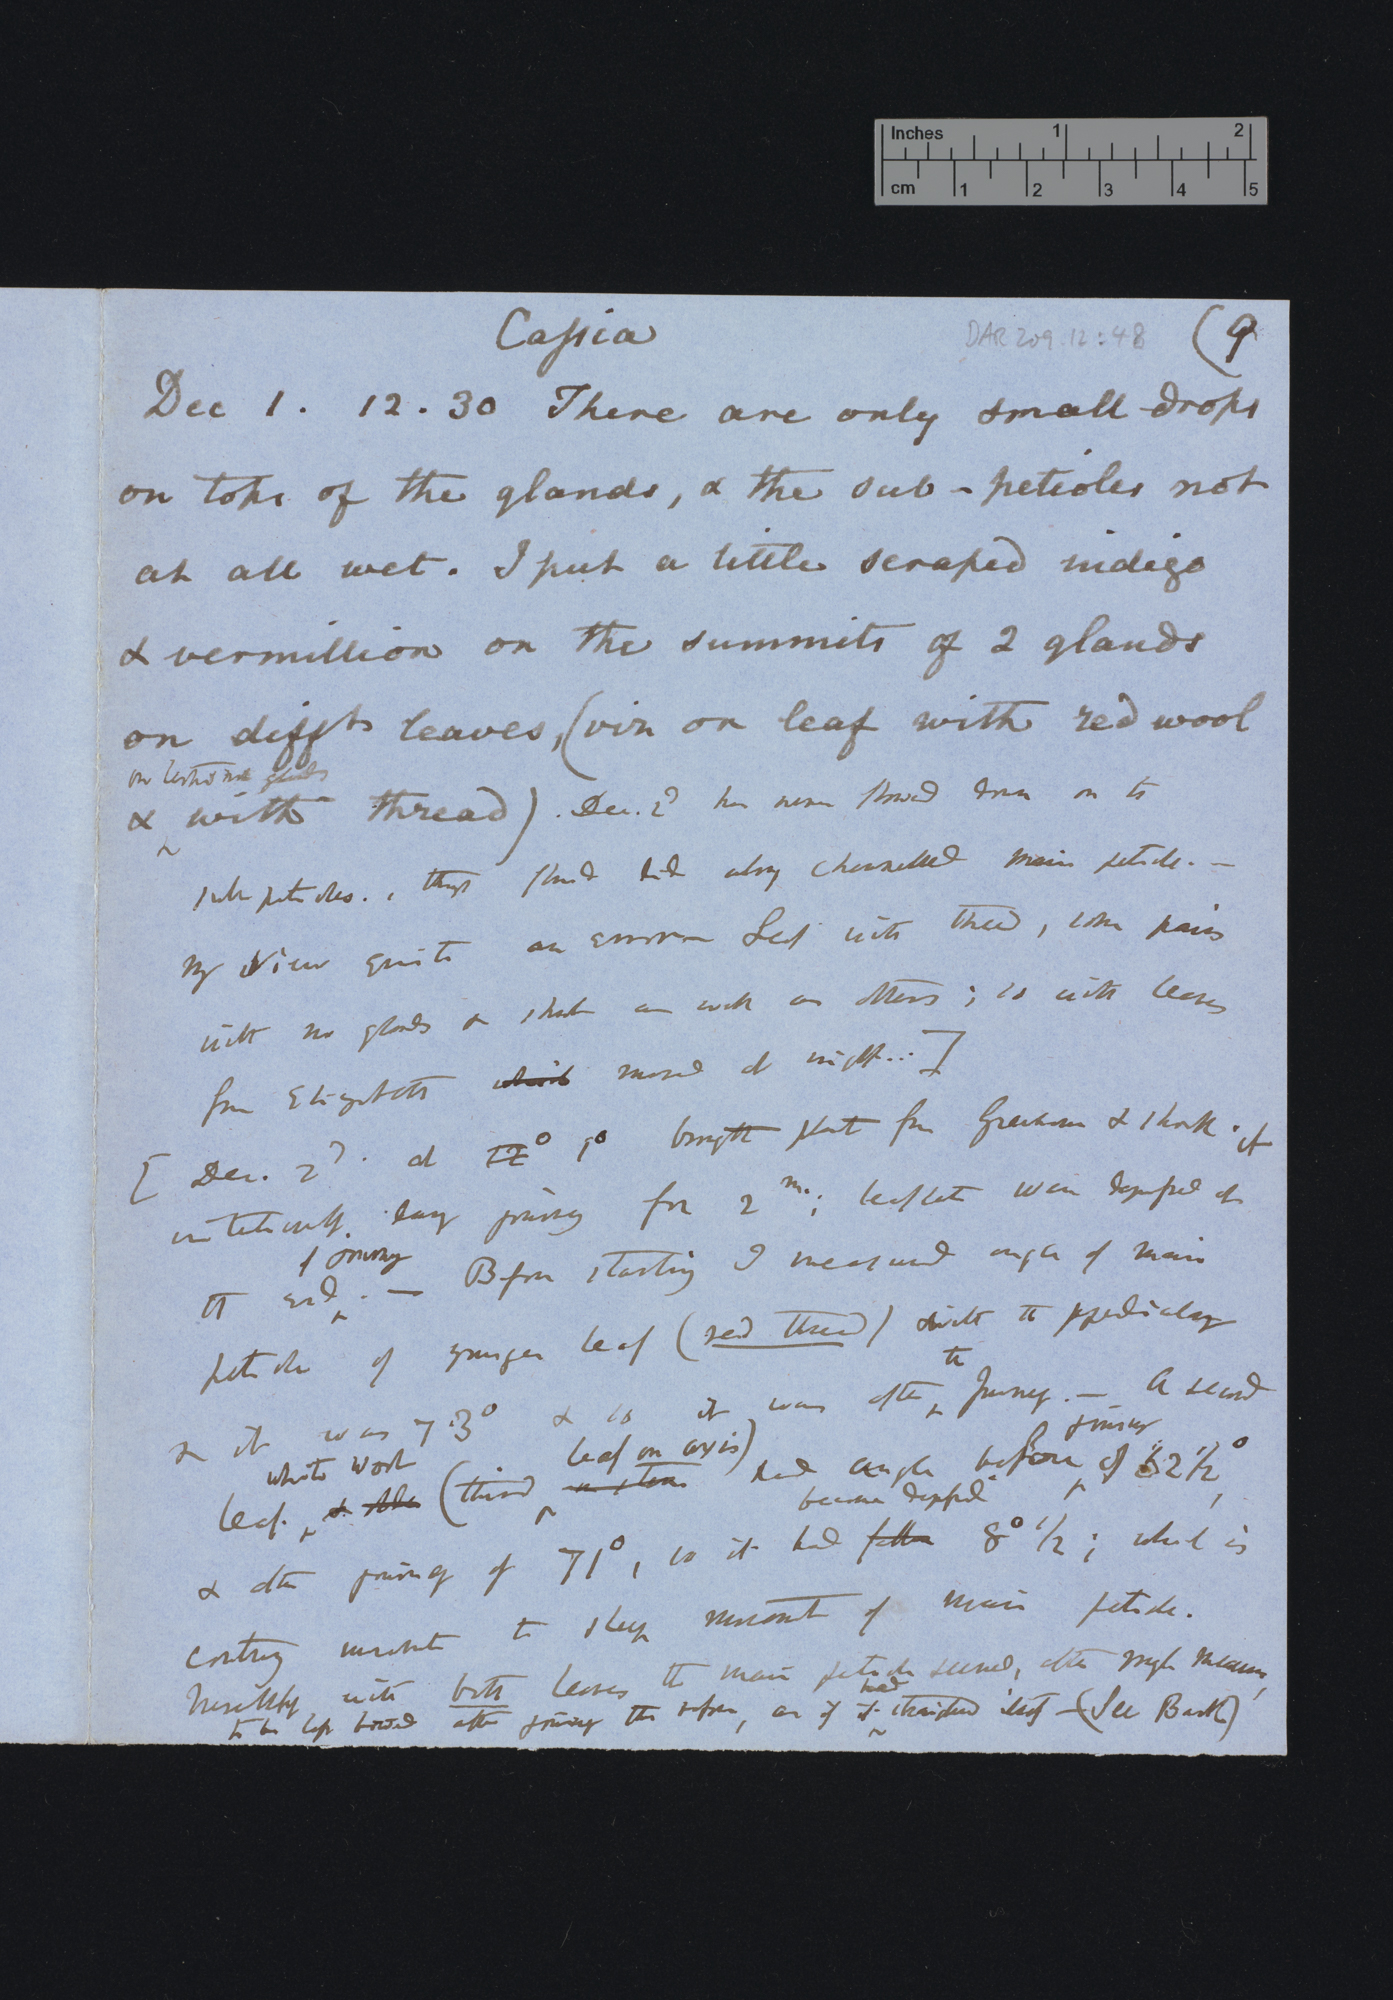 Inches 1 2
cm 1 2 3 4 5
Cassia DAR 209.12:48 (9
Dec 1. 12.30 There are only small drops
on tops of the glands, & the sub-petioles not
at all wet. I put a little scraped indigo
& vermillion on the summits of 2 glands
on difft leaves, (viz on leaf with red wool
on
& with thread). Dec. 2d has never flowed down on to
sub petioles. , though fluid did along channelled main petiole. —
My view quite an error Leaf with thread, some pairs
with no glands & shut as well as others; so with leaves
from Elizabeth which moved at night... ]
[ Dec. 2d. at 12° 50 brought plant from Greenhouse & shook it
intentionally during journey for 2 m.; leaflets were depressed at
of journey
the end. — Before starting I measured angle of main
petiole of younger leaf (red thread) with the
the
& it was 73° & so it was after journey. — A second
white wool leaf on axis) journey
leaf (third had angle before of 62½°,
became depressed
& after journey of 71°, so it had fallen 8°½; which is
contrary movement to sleep movement of main petiole.
with both leaves the main petiole seemed, after rough measure,
had
to be less bowed after journey than before, as if it straightened itself — (See Back)